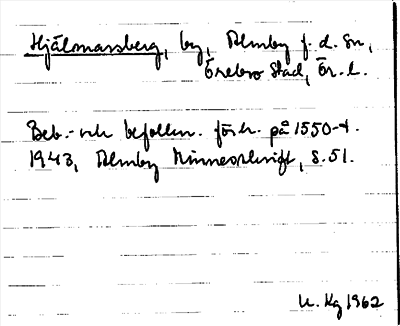 Hjälmarsberg, by, Almby f. d. sn,
Örebro stad, Ör. l.
Beb.- och befolkn. förh. på 1550-t.
1943, Almby Minnesskrift, s. 51.
U. Kg 1962